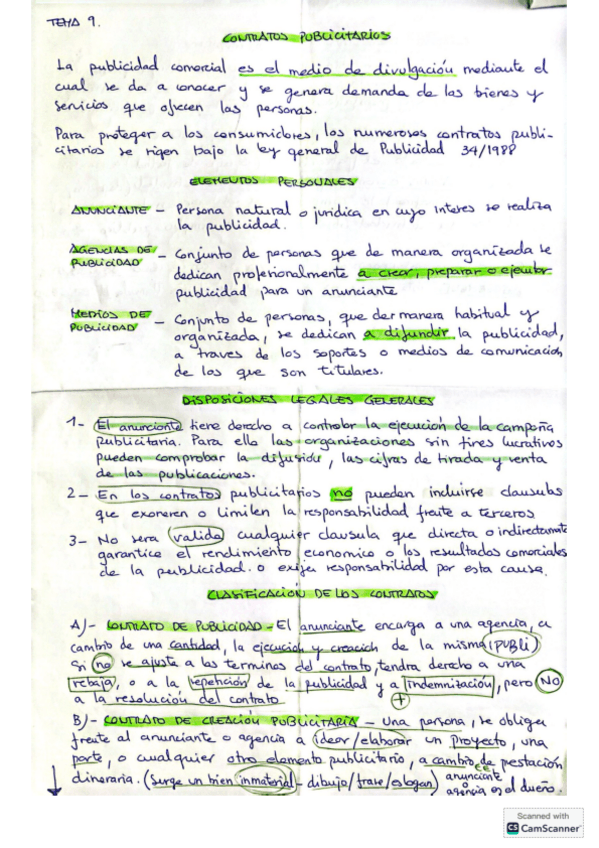 TEMA 9.
CONTRATOS PUBLICITARIOS
La publicidad comercial es el medio de divulgación mediante el
cual se da a conocer y se genera demanda de las bienes y
servicios que ofrecen las personas.
Para proteger a los consumidores, los numerosos contratos publi-
citarios se rigen bajo la ley general de Publicidad 34/1988
ELEMENTOS PERSONALES
ANUNCIANTE - Persona natural o jurídica en cuyo interes se realiza
la publicidad.
AGENCIAS DE PUBLICIDAD - Conjunto de personas que de manera organizada se
dedican profesionalmente a crear, preparar o ejecutar
publicidad para un anunciante
MEDIOS DE PUBLICIDAD - Conjunto de personas, que de manera habitual y
organizada, se dedican a difundir la publicidad,
a traves de los soportes o medios de comunicación
de los que son titulares.
DISPOSICIONES LEGALES GENERALES
1- El anunciante tiene derecho a controlar la ejecución de la campaña
publicitaria. Para ello las organizaciones sin fines lucrativos
pueden comprobar la difusión, las cifras de tirada y venta
de las publicaciones.
2- En los contratos publicitarios no pueden incluirse clausulas
que exoneren o limiten la responsabilidad frente a terceros
3- No sera valida cualquier clausula que directa o indirectamente
garantice el rendimiento economico o los resultados comerciales
de la publicidad. o exija responsabilidad por esta causa.
CLASIFICACIÓN DE LOS CONTRATOS
A)- CONTRATO DE PUBLICIDAD - El anunciante encarga a una agencia, a
cambio de una cantidad, la ejecucion y creación de la misma (PUBLI)
Si no se ajusta a las terminos del contrato, tendra derecho a una
rebaja, o a la repetición de la publicidad y a indemnización, pero NO
a la resolución del contrato +
B)- CONTRATO DE CREACIÓN PUBLICITARIA - Una persona, se obliga
frente al anunciante o agencia a idear/elaborar un proyecto, una
parte, o cualquier otro elemento publicitario, a cambio de prestación
dineraria. (Surge un bien inmaterial - dibujo/frase/eslogan) anunciante
o agencia es el dueño.
Scanned with
CS CamScanner